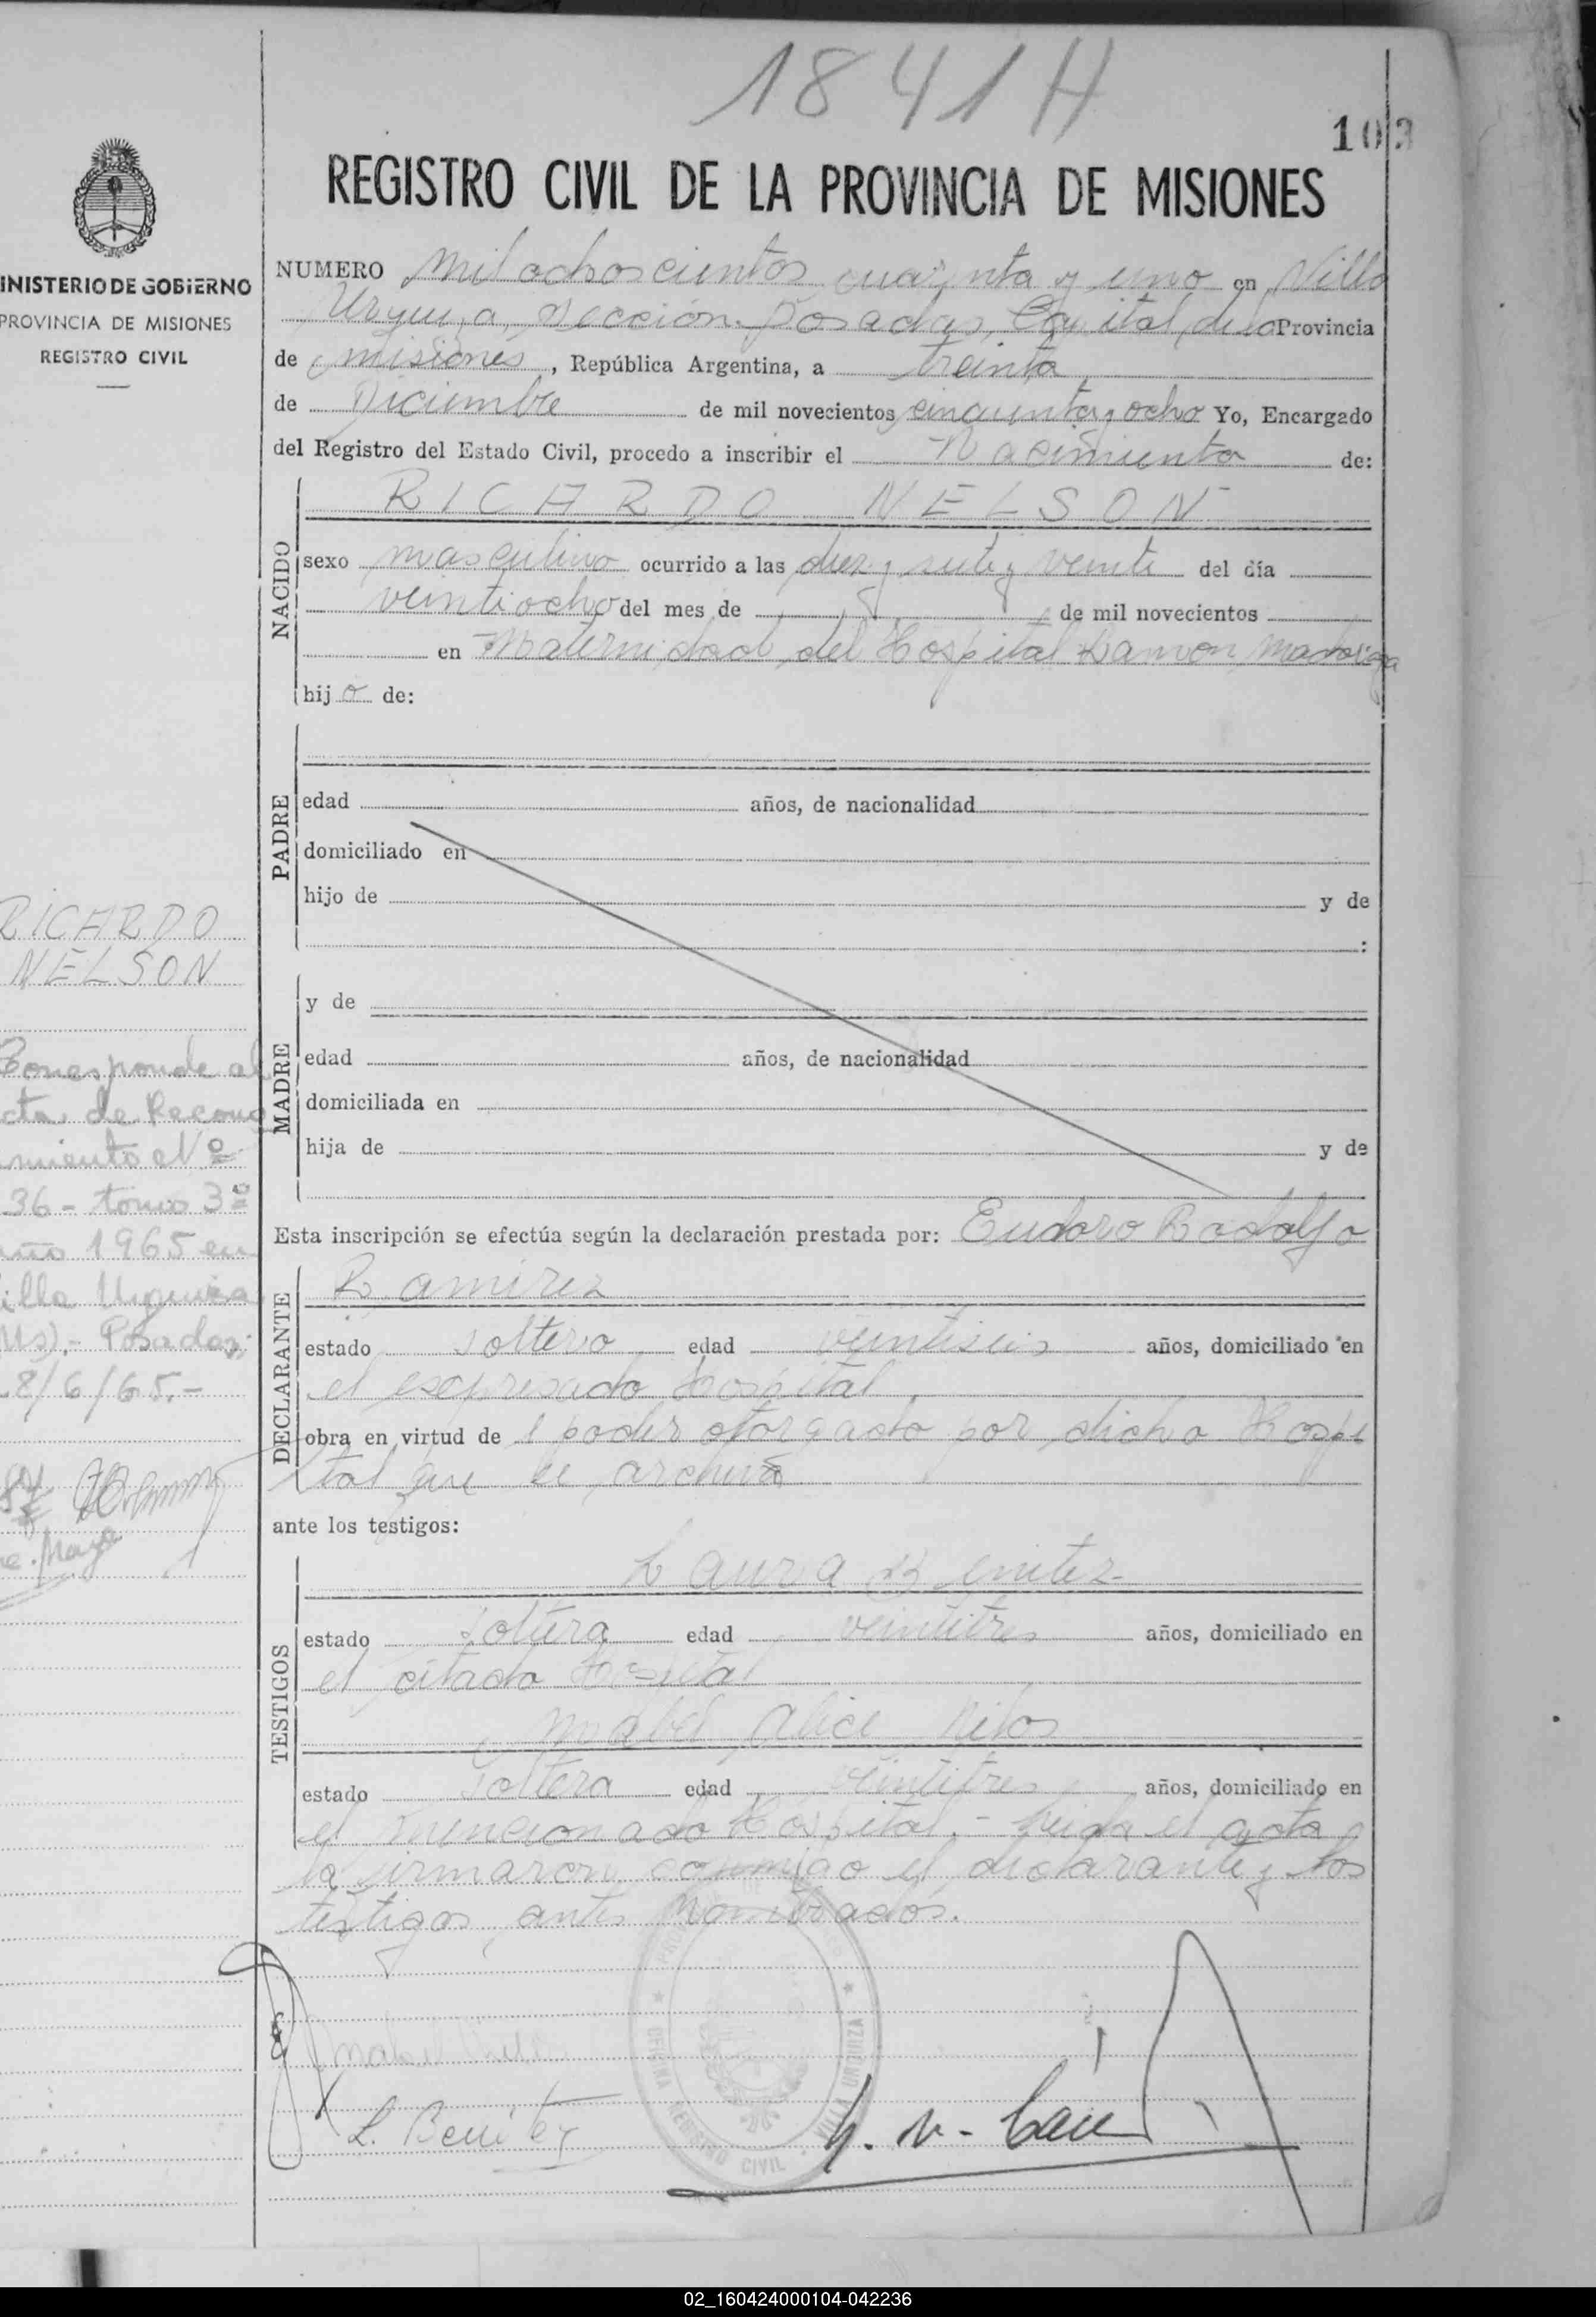 1841 H
103
REGISTRO CIVIL DE LA PROVINCIA DE MISIONES
NUMERO mil ochoscientos cuarenta y uno en Villa
Urquiza, Sección Posadas, Capital de la Provincia
de Misiones, República Argentina, a treinta
de Diciembre de mil novecientos cincuenta y ocho Yo, Encargado
del Registro del Estado Civil, procedo a inscribir el Nacimiento de:
NACIDO
RICARDO NELSON
sexo masculino ocurrido a las diez y siete y veinte del día
veintiocho del mes de de mil novecientos
en Maternidad del Hospital Ramon Madariaga
hijo de:
PADRE
edad años, de nacionalidad
domiciliado en
hijo de y de
:
MADRE
y de
edad años, de nacionalidad
domiciliada en
hija de y de
Esta inscripción se efectúa según la declaración prestada por: Eudoro Rodolfo
DECLARANTE
Ramirez
estado soltero edad veintiseis años, domiciliado en
el expresado Hospital
obra en virtud de poder otorgado por dicho Hospi
tal que se archiva
ante los testigos:
TESTIGOS
Laura Benitez
estado soltera edad veintitres años, domiciliado en
el citado Hospital
Mabel Alice
estado soltera edad veintitres años, domiciliado en
el mencionado Hospital.- Leida el acta
la firmaron conmigo el declarante y los
testigos antes nombrados.
L. Benitez
OFICINA REGISTRO CIVIL VILLA URQUIZA
MINISTERIO DE GOBIERNO
PROVINCIA DE MISIONES
REGISTRO CIVIL
RICARDO
NELSON
Corresponde al
cta de Recono
miento Nº
36 - tomo 3º
año 1965 en
illa Urquiza
(Ms).- Posadas,
8/6/65.-
02_160424000104-042236